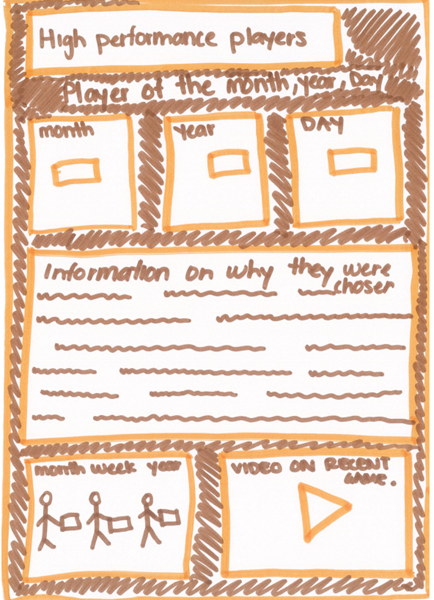 High performance players
Player of the month, year, Day
month
year
DAY
Information on why they were
choser
month week year
VIDEO ON RECENT
GAME.